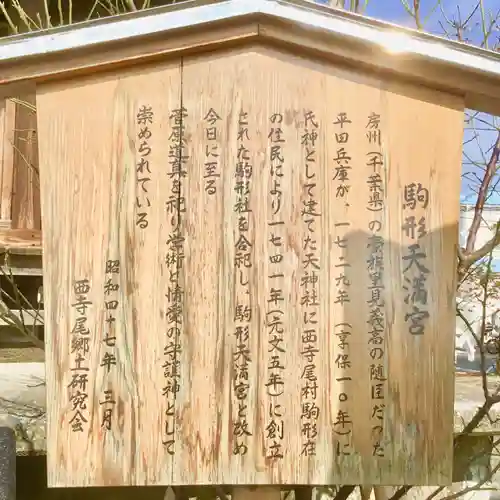 駒形天満宮
房州（千葉県）の豪族里見義高の随臣だった
平田兵庫が、一七二九年（享保一〇年）に
氏神として建てた天神社に西寺尾村駒形在
の住民により一七四一年（元文五年）に創立
された駒形社を合祀し、駒形天満宮と改め
今日に至る
菅原道真を祀り学術と情愛の守護神として
崇められている
昭和四十七年　三月
西寺尾郷土研究会